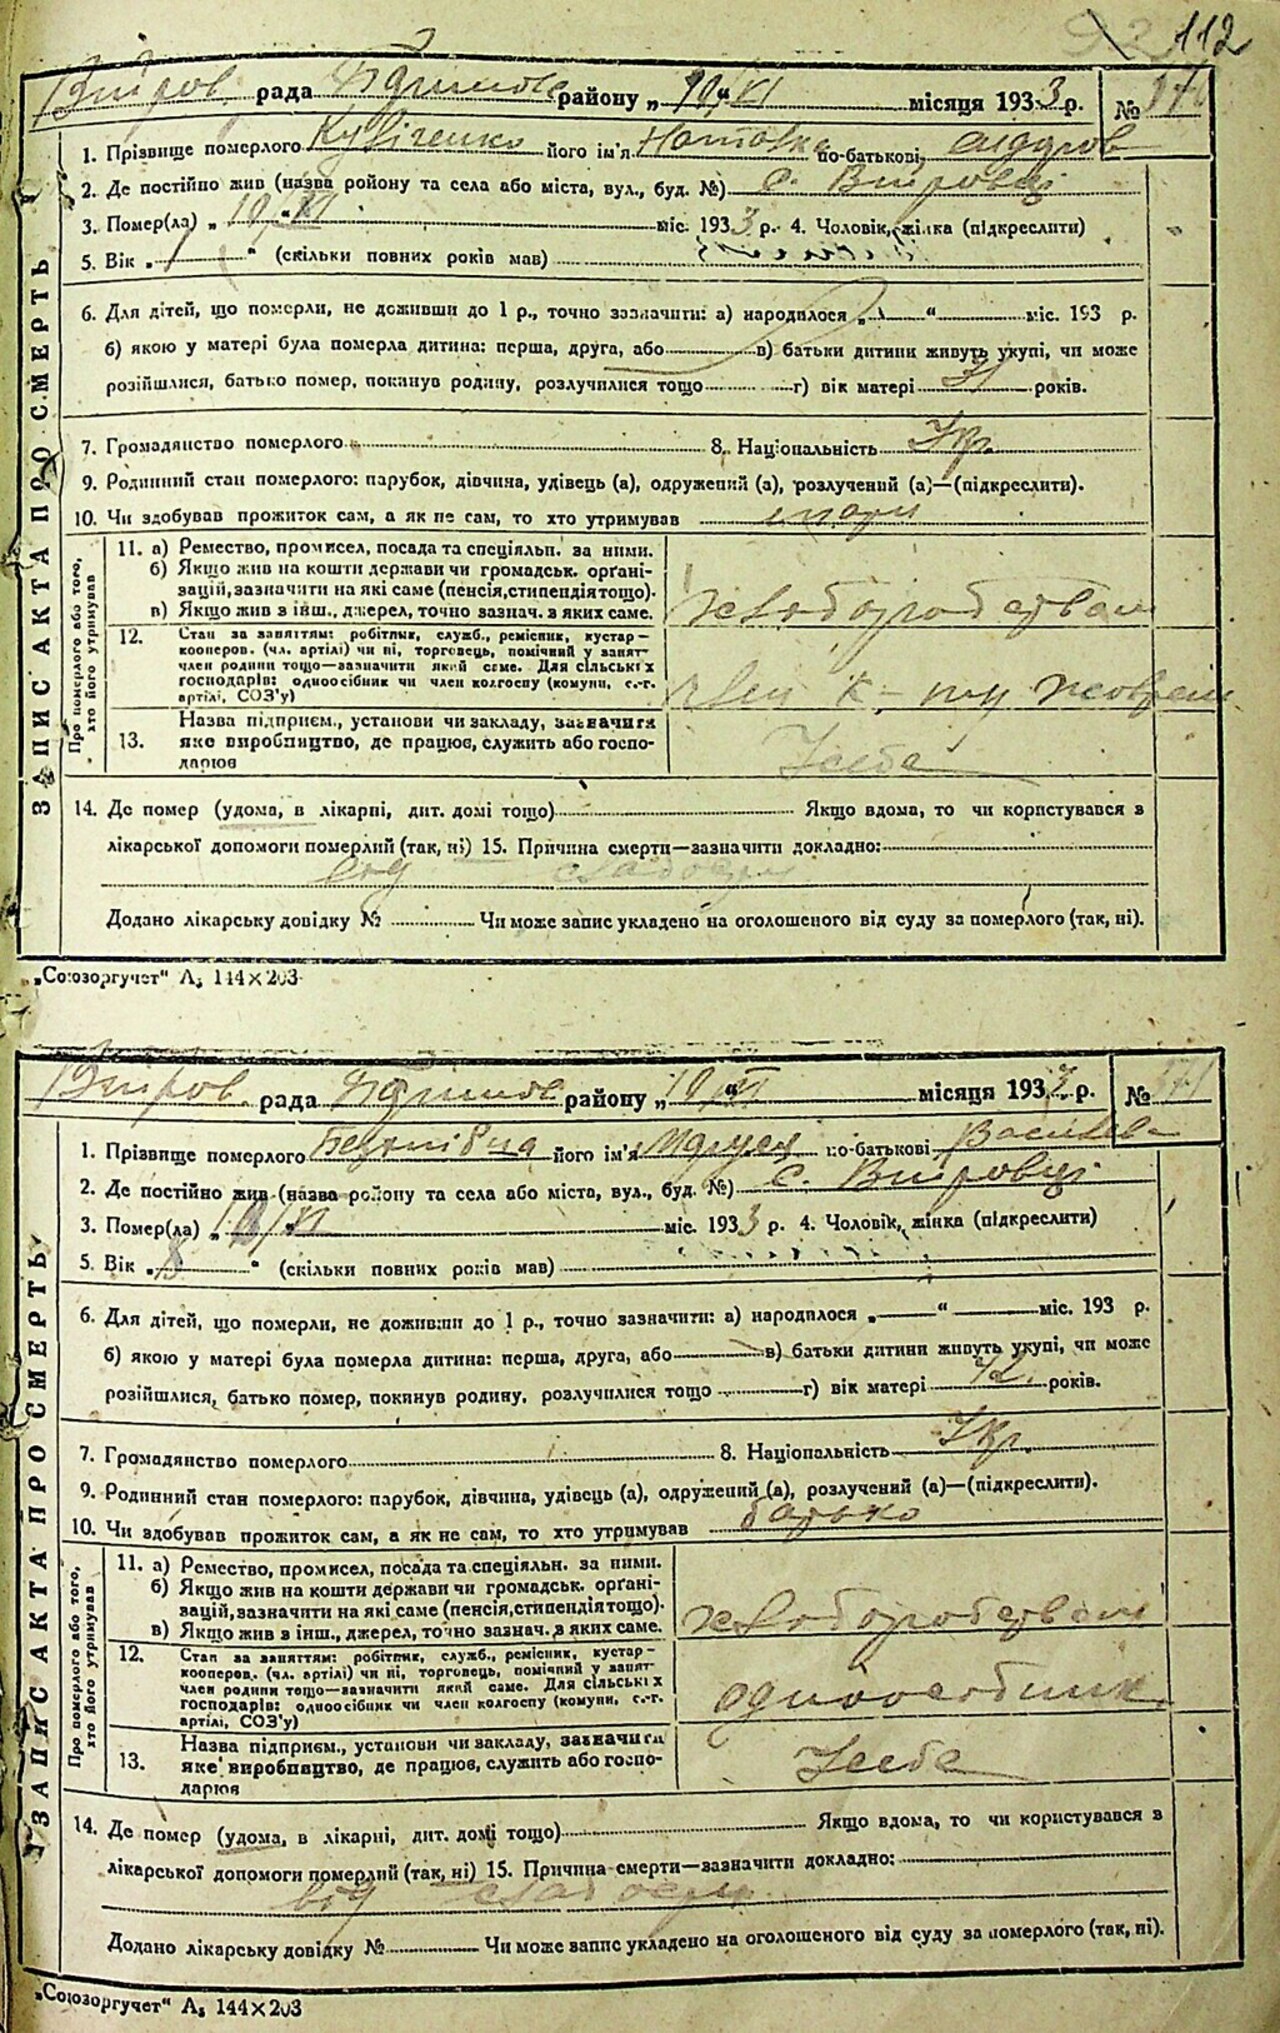 112
рада району „ місяця 193 3 р. №
1. Прізвище померлого його ім'я по-батькові
2. Де постійно жив (назва ройону та села або міста, вул., буд. №) с.
3. Помер(ла) „ 19/XI міс. 193 3 р. 4. Чоловік, жінка (підкреслити)
5. Вік „ 1 “ (скільки повних років мав)
6. Для дітей, що померли, не доживши до 1 р., точно зазначити: а) народилося „ “ міс. 193 р.
б) якою у матері була померла дитина: перша, друга, або в) батьки дитини живуть укупі, чи може
розійшлися, батько помер, покинув родину, розлучилися тощо г) вік матері 31 років.
7. Громадянство померлого 8. Національність Укр.
9. Родинний стан померлого: парубок, дівчина, удівець (а), одружений (а), розлучений (а)—(підкреслити).
10. Чи здобував прожиток сам, а як не сам, то хто утримував
ЗАПИС АКТА ПРО СМЕРТЬ
Про померлого або того, хто його утримував
11. а) Ремество, промисел, посада та спеціяльн. за ними.
б) Якщо жив на кошти держави чи громадськ. орґані-
зацій, зазначити на які саме (пенсія, стипендія тощо).
в) Якщо жив з інш., джерел, точно зазнач. з яких саме.
12. Стан за заняттям: робітник, служб., ремісник, кустар—
кооперов. (чл. артілі) чи ні, торговець, помічний у занят-
член родини тощо—зазначити який саме. Для сільських
господарів: одноосібник чи член колгоспу (комуни, с.-г.
артілі, СОЗ'у)
13. Назва підприєм., установи чи закладу, зазначити
яке виробництво, де працює, служить або госпо-
дарює
У себе
14. Де помер (удома, в лікарні, дит. домі тощо) Якщо вдома, то чи користувався в
лікарської допомоги померлий (так, ні) 15. Причина смерти—зазначити докладно:
від
Додано лікарську довідку № Чи може запис укладено на оголошеного від суду за померлого (так, ні).
„Союзоргучет“ А₅ 144×203
рада району „ місяця 193 р. №
1. Прізвище померлого його ім'я Маруся по-батькові
2. Де постійно жив (назва ройону та села або міста, вул., буд. №) с.
3. Помер(ла) „ міс. 193 3 р. 4. Чоловік, жінка (підкреслити)
5. Вік „ 8 “ (скільки повних років мав)
6. Для дітей, що померли, не доживши до 1 р., точно зазначити: а) народилося „ “ міс. 193 р.
б) якою у матері була померла дитина: перша, друга, або в) батьки дитини живуть укупі, чи може
розійшлися, батько помер, покинув родину, розлучилися тощо г) вік матері 42 років.
7. Громадянство померлого 8. Національність Укр.
9. Родинний стан померлого: парубок, дівчина, удівець (а), одружений (а), розлучений (а)—(підкреслити).
10. Чи здобував прожиток сам, а як не сам, то хто утримував батько
ЗАПИС АКТА ПРО СМЕРТЬ
Про померлого або того, хто його утримував
11. а) Ремество, промисел, посада та спеціяльн. за ними.
б) Якщо жив на кошти держави чи громадськ. орґані-
зацій, зазначити на які саме (пенсія, стипендія тощо).
в) Якщо жив з інш., джерел, точно зазнач. з яких саме.
12. Стан за заняттям: робітник, служб., ремісник, кустар—
кооперов. (чл. артілі) чи ні, торговець, помічний у занят-
член родини тощо—зазначити який саме. Для сільських
господарів: одноосібник чи член колгоспу (комуни, с.-г.
артілі, СОЗ'у)
одноосібник
13. Назва підприєм., установи чи закладу, зазначити
яке виробництво, де працює, служить або госпо-
дарює
У себе
14. Де помер (удома, в лікарні, дит. домі тощо) Якщо вдома, то чи користувався в
лікарської допомоги померлий (так, ні) 15. Причина смерти—зазначити докладно:
від
Додано лікарську довідку № Чи може запис укладено на оголошеного від суду за померлого (так, ні).
„Союзоргучет“ А₅ 144×203